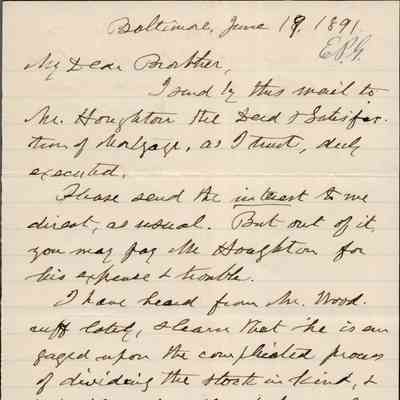 Baltimore, June 19. 1891
E.P.G.
My Dear Brother,
I send by this mail to
Mr. Houghton the Deed & Satisfac-
tion of Mortgage, as I trust, duly
executed.
Please send the interest to me
direct, as usual. But out of it
you may pay Mr Houghton for
his expense & trouble.
I have heard from Mr. Wood-
ruff lately, & learn that he is en-
gaged upon the complicated process
of dividing the stock in kind, &